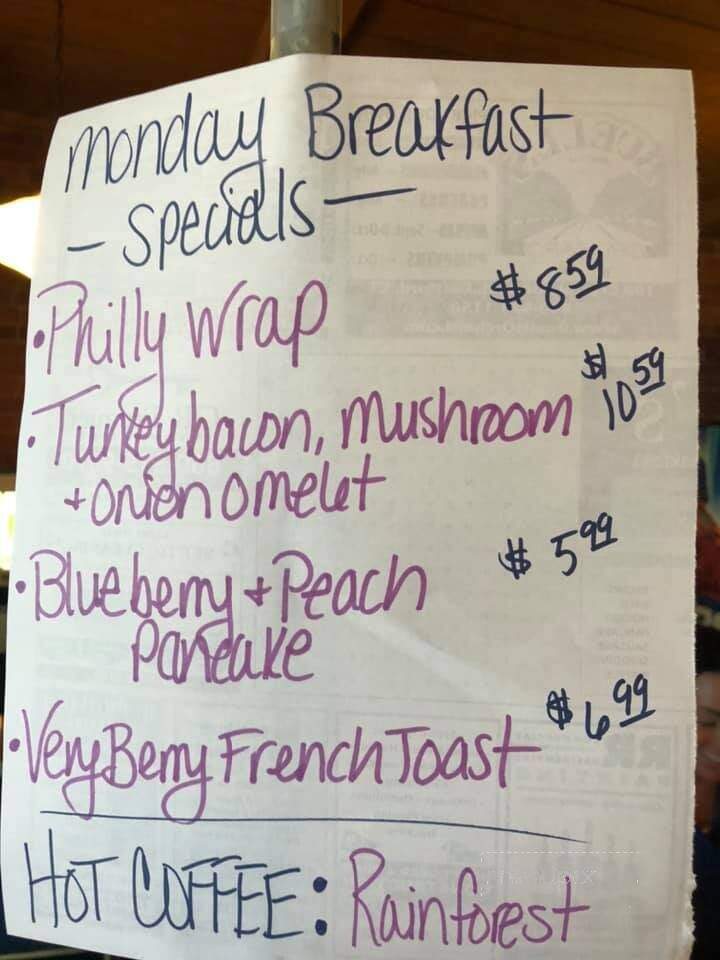 Monday Breakfast
- Specials -
• Philly Wrap $ 8.59
• Turkey bacon, Mushroom $ 10.59
+ onion omelet
• Blueberry + Peach $ 5.99
Pancake
• Very Berry French Toast $ 6.99
HOT COFFEE: Rainforest